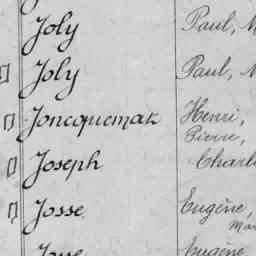 Joly Paul,
Joly Paul,
Joncquemak Henri,
Pierre,
Joseph
Josse Eugène,
Eugène